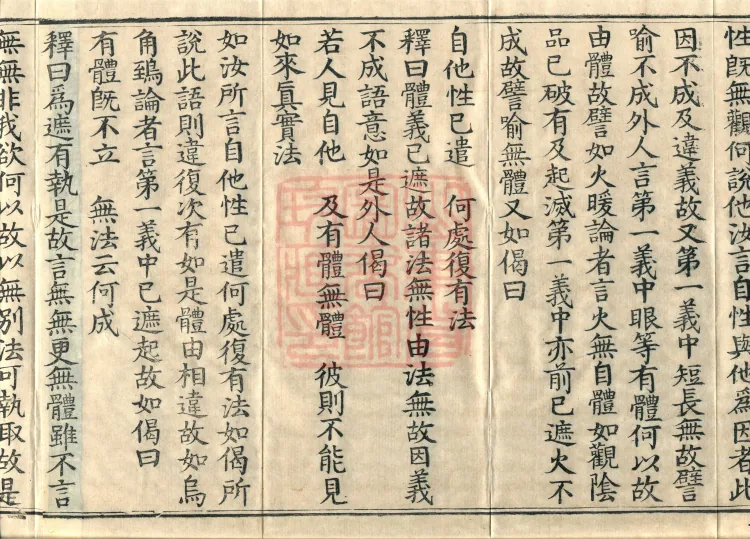 性旣無觀何說他汝言自性與他爲因者此
因不成及違義故又第一義中短長無故譬
喻不成外人言第一義中眼等有體何以故
由體故譬如火暖論者言火無自體如觀陰
品已破有及起滅第一義中亦前已遮火不
成故譬喻無體又如偈曰
自他性已遣　何處復有法
釋曰體義已遮故諸法無性由法無故因義
不成語意如是外人偈曰
若人見自他　及有體無體　彼則不能見
如來眞實法
如汝所言自他性已遣何處復有法如偈所
說此語則違復次有如是體由相違故如烏
角鵄論者言第一義中已遮起故如偈曰
有體旣不立　無法云何成
釋曰爲遮有執是故言無無更無體雖不言
無無非我欲何以故以無別法可執取故是